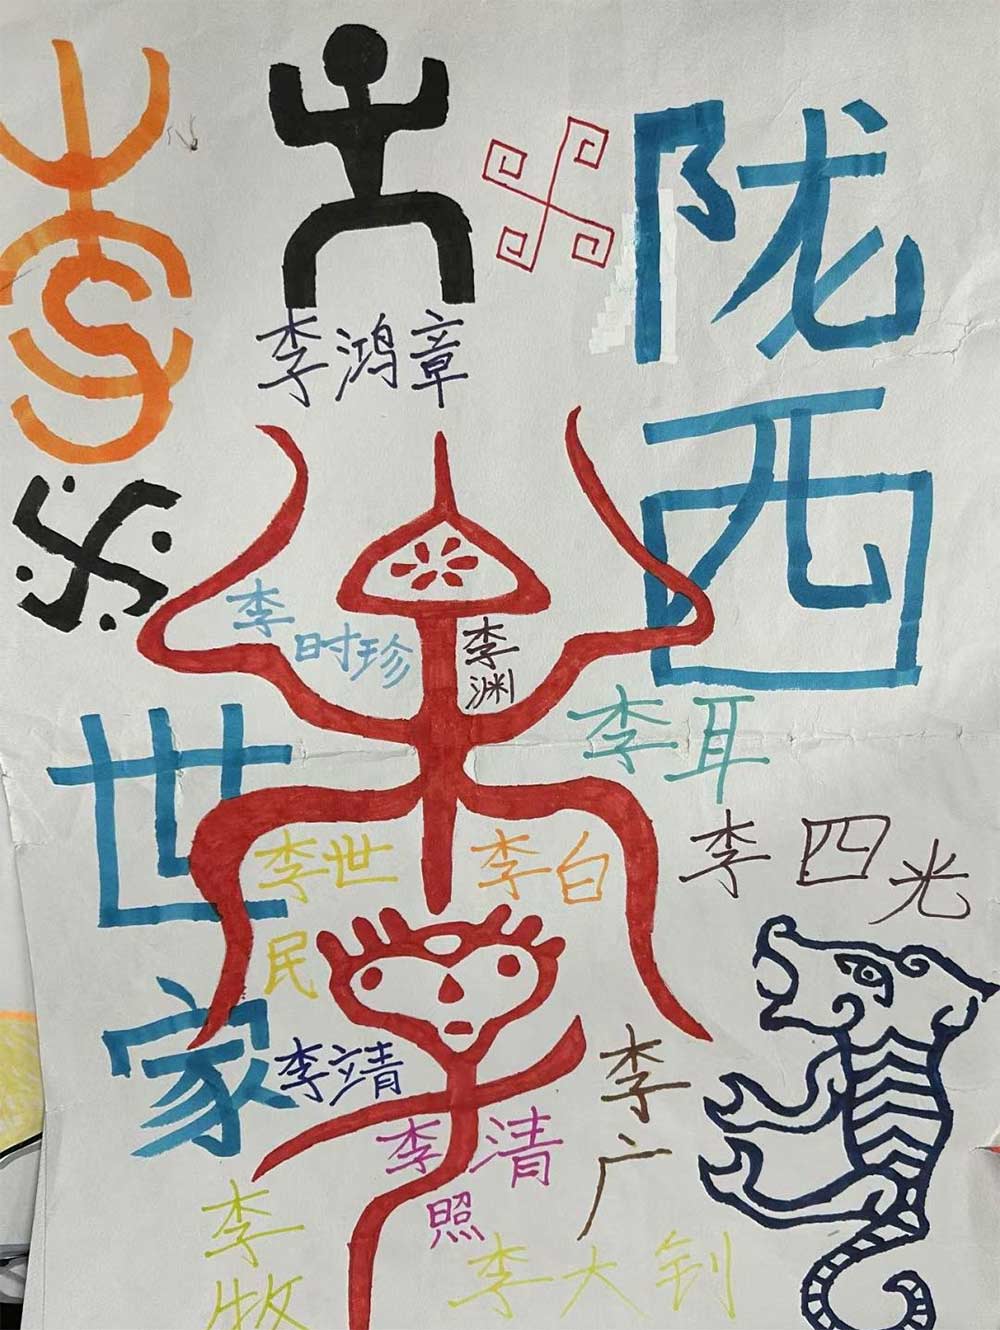 陇
西
世
家
李鸿章
李时珍
李渊
李耳
李世民
李白
李四光
李靖
李清照
李广
李牧
李大钊